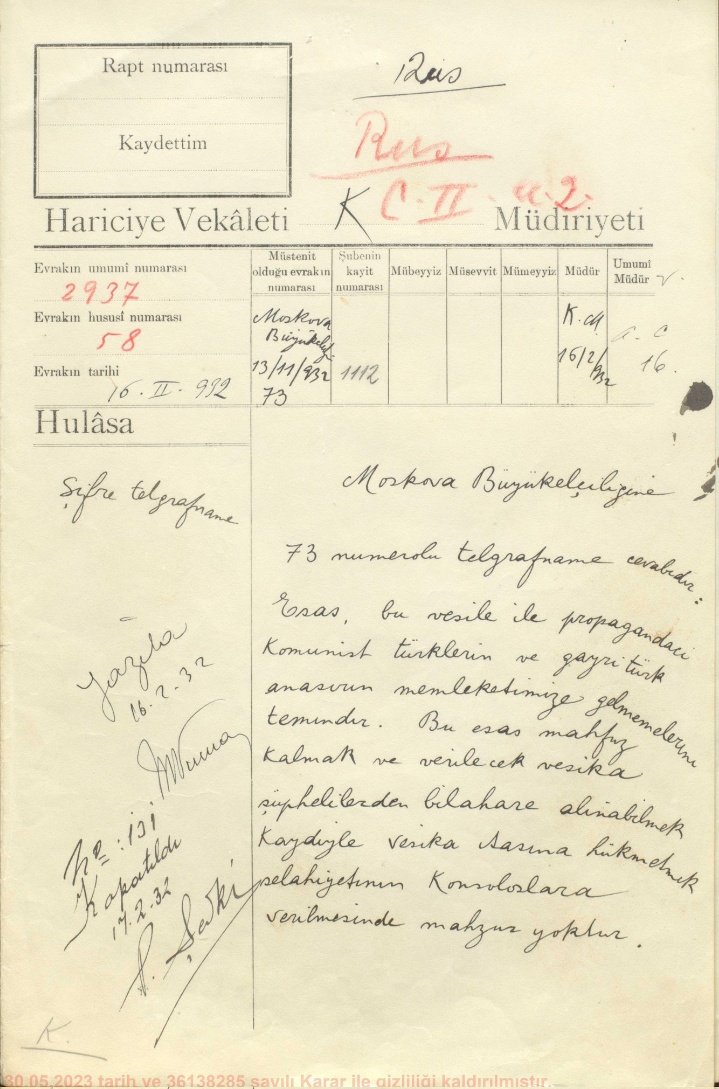 Rapt numarası
Kaydettim
Rus
Rus
Hariciye Vekâleti K C-II-u.2. Müdiriyeti
Evrakın umumî numarası
2937
Evrakın hususî numarası
58
Evrakın tarihi
16. II. 932
Müstenit olduğu evrakın numarası
Şubenin kayit numarası
Mübeyyiz
Müsevvit
Mümeyyiz
Müdür
Umumî Müdür
Moskova
Büyükelçiliği
13/11/932
73
1112
K.M.
16/2/932
A. C
16.
Hulâsa
Şifre telgrafname
Moskova Büyükelçiligine
73 numerolu telgrafname cevabıdır:
Esas, bu vesile ile propagandaci
Komunist türklerin ve gayri türk
anasırın memleketimize gelmemelerini
temindir. Bu esas mahfuz
Kalmak ve verilecek vesika
şüphelilerden bilahare alınabilmek
Kaydiyle vesika itasına hükmetmek
selahiyetinin Konsoloslara
verilmesinde mahzur yoktur.
Yazıla
16-2-32
No: 131
Kapatıldı
17.2.32
Ş. Şevki
K.
30.05.2023 tarih ve 36138285 sayılı Karar ile gizliliği kaldırılmıştır.